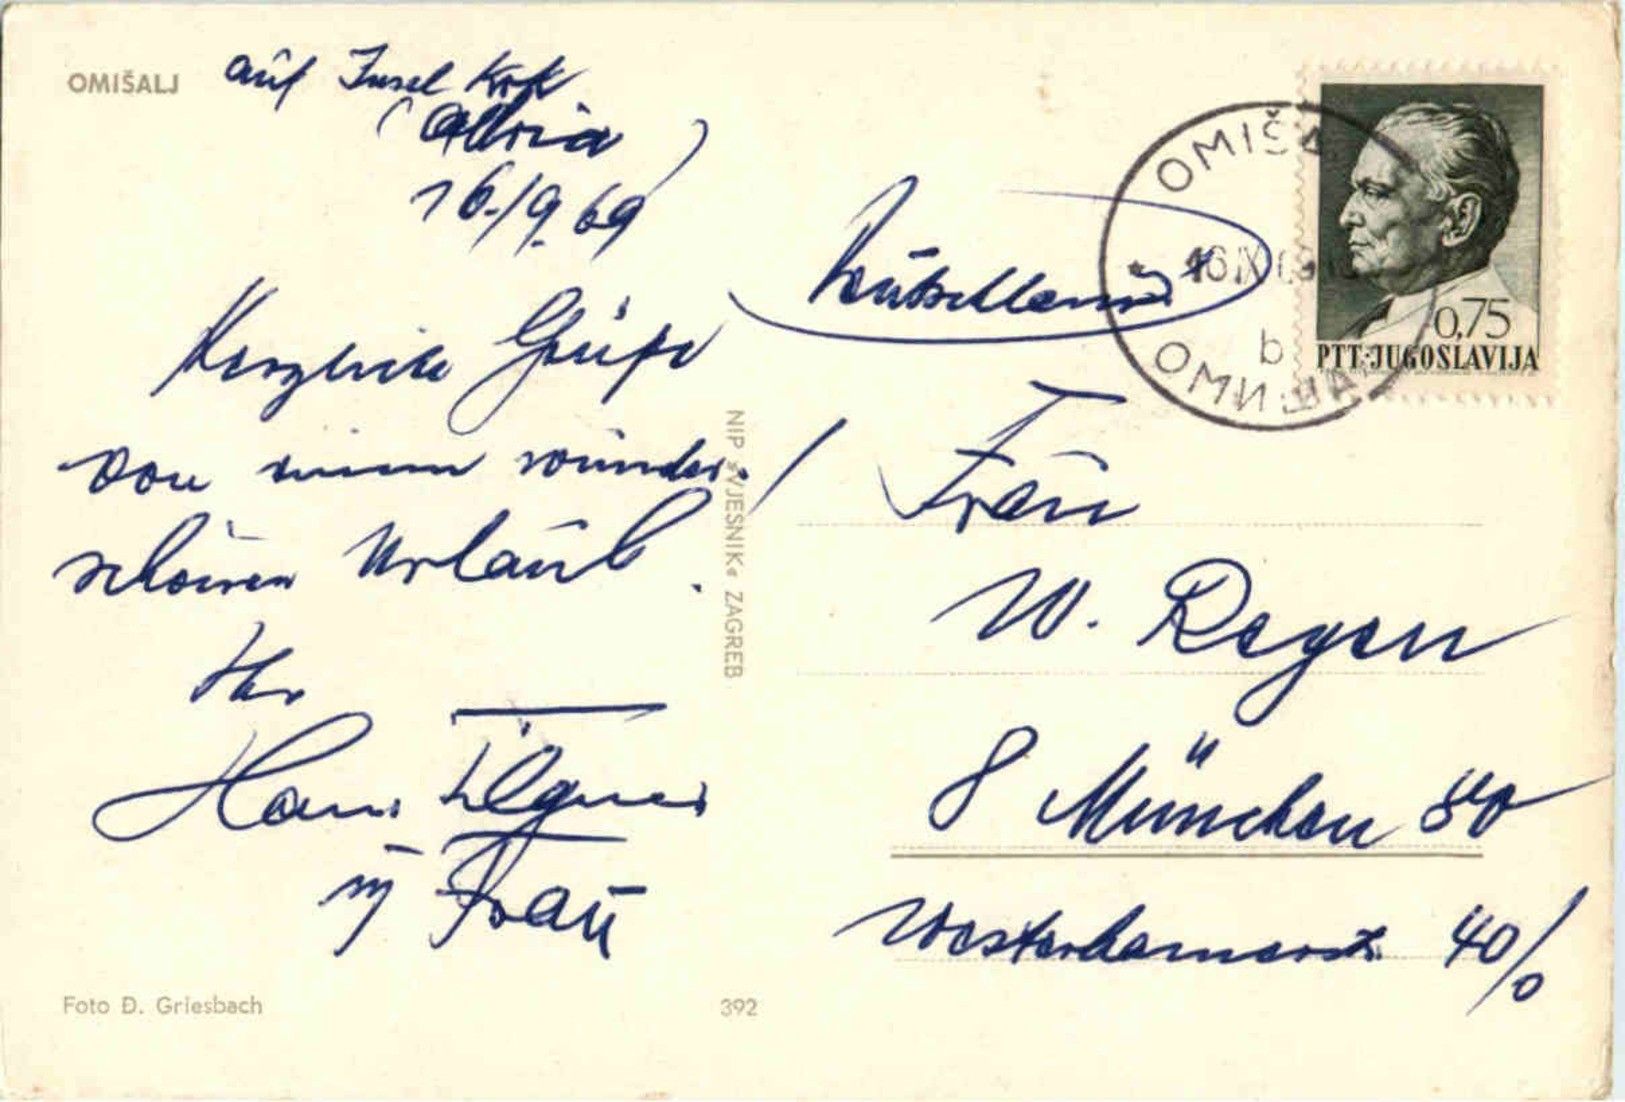 OMIŠALJ auf Insel Krk
(Adria)
16./9. 69
Herzliche Grüße
von einem wunder-
schönen Urlaub.
Ihr
Hans Ilgner
u Frau
Foto Đ. Griesbach
392
NIP »VJESNIK« ZAGREB
Deutschland
OMIŠA
16 IX 69
b
ОМИША
0,75
PTT·JUGOSLAVIJA
Frau
W. Regen
8 München 80
Westerhamerstr. 40/0